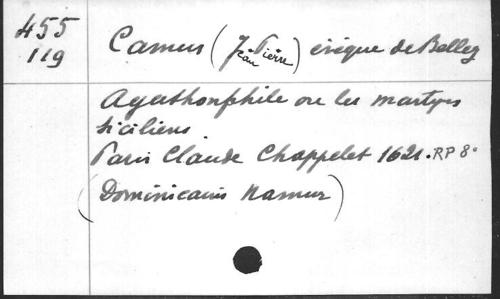 455
119
Camus (Jean Pierre) évêque de Belley
Agathonphile ou les martyrs
siciliens
Paris Claude Chappelet 1621. RP 8°
(Dominicains Namur)